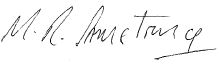 M. R. Armstrong